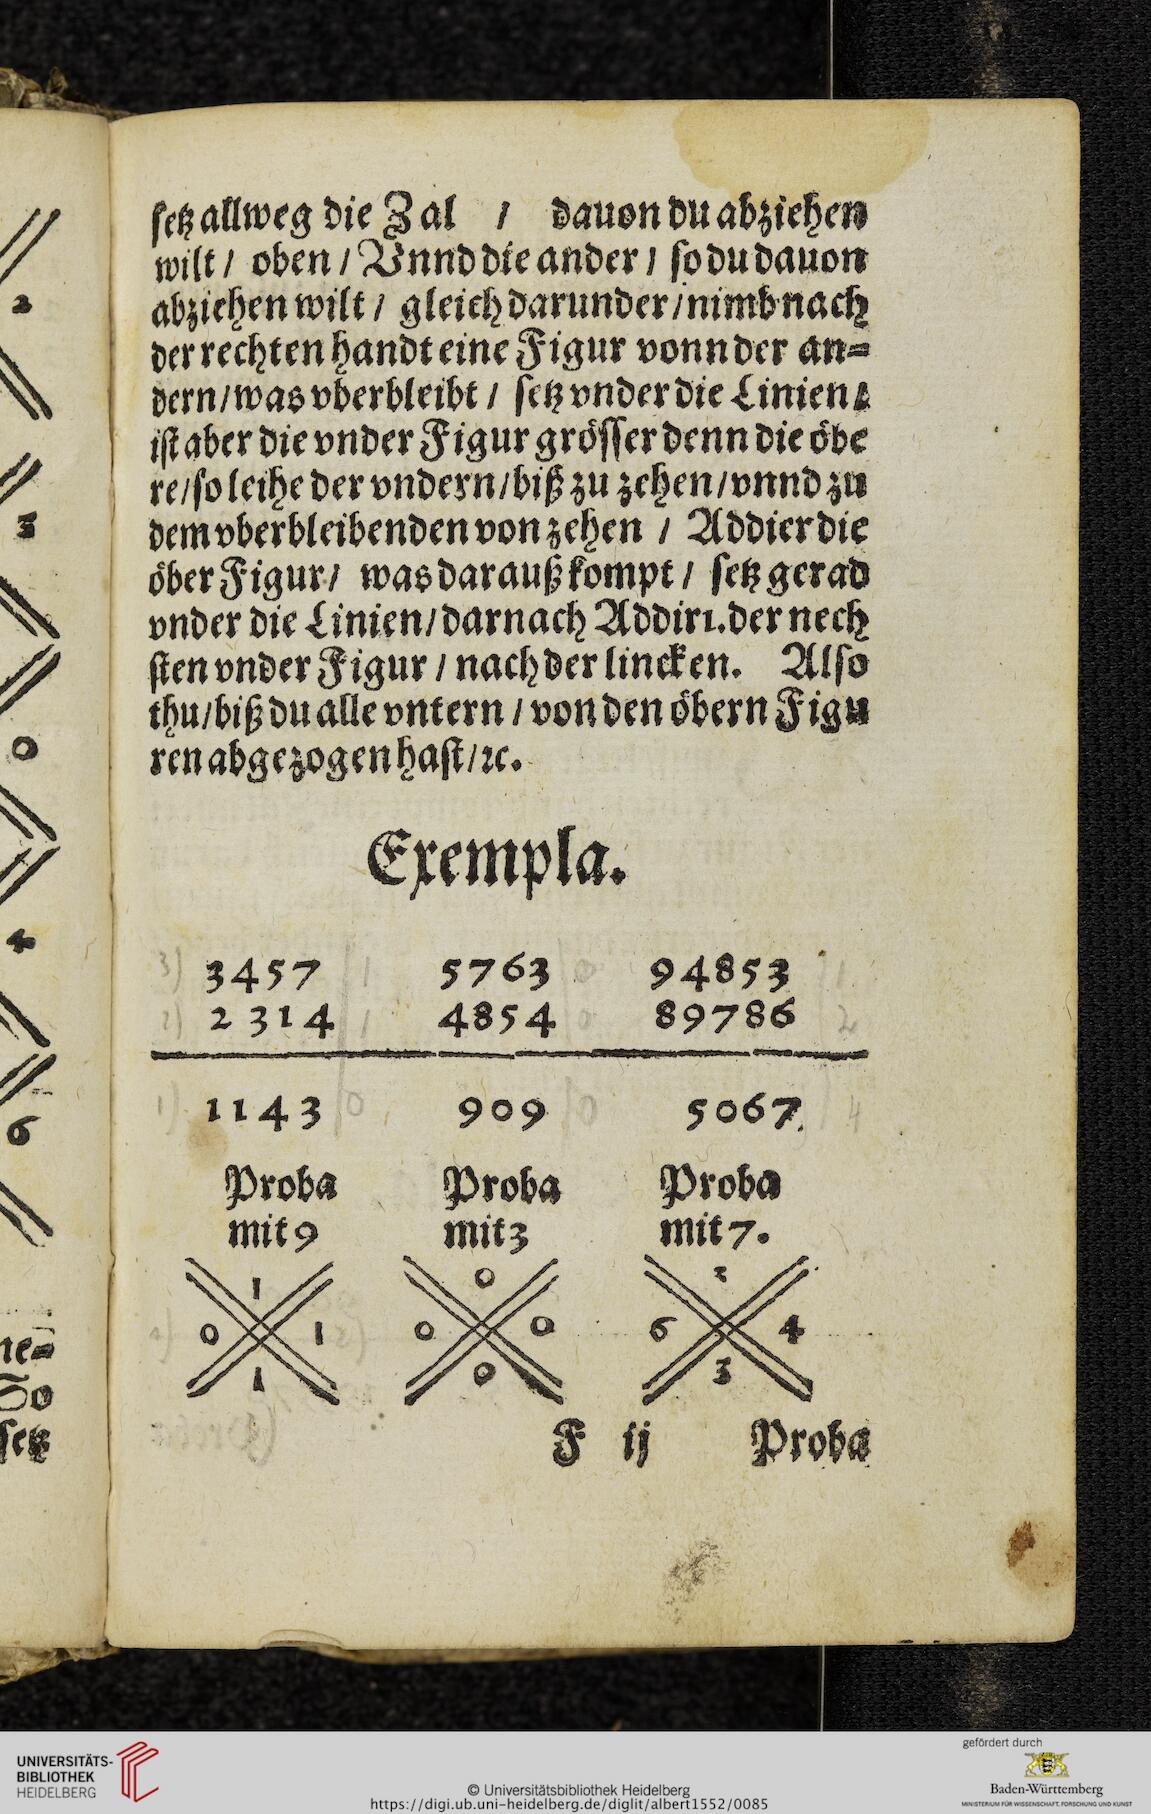 setz allweg die Zal / dauon du abziehen
wilt / oben / Vnnd die ander / so du dauon
abziehen wilt / gleich darunder / nimb nach
der rechten handt eine Figur vonn der an=
dern / was vberbleibt / setz vnder die Linien /
ist aber die vnder Figur grösser denn die öbe
re / so leihe der vndern / biß zu zehen / vnnd zu
dem vberbleibenden von zehen / Addier die
öber Figur / was darauß kompt / setz gerad
vnder die Linien / darnach Addir 1. der nech
sten vnder Figur / nach der lincken. Also
thu / biß du alle vntern / von den öbern Figu
ren abgezogen hast / ꝛc.
Exempla.
3457 5763 94853
2314 4854 89786
1143 909 5067
Proba Proba Proba
mit 9 mit 3 mit 7.
1 0
0 1 0 0 6 4
1 0 3
F ij Proba
2
3
0
4
6
ne=
So
setz
UNIVERSITÄTS-
BIBLIOTHEK
HEIDELBERG
© Universitätsbibliothek Heidelberg
https://digi.ub.uni-heidelberg.de/diglit/albert1552/0085
gefördert durch
Baden-Württemberg
MINISTERIUM FÜR WISSENSCHAFT, FORSCHUNG UND KUNST